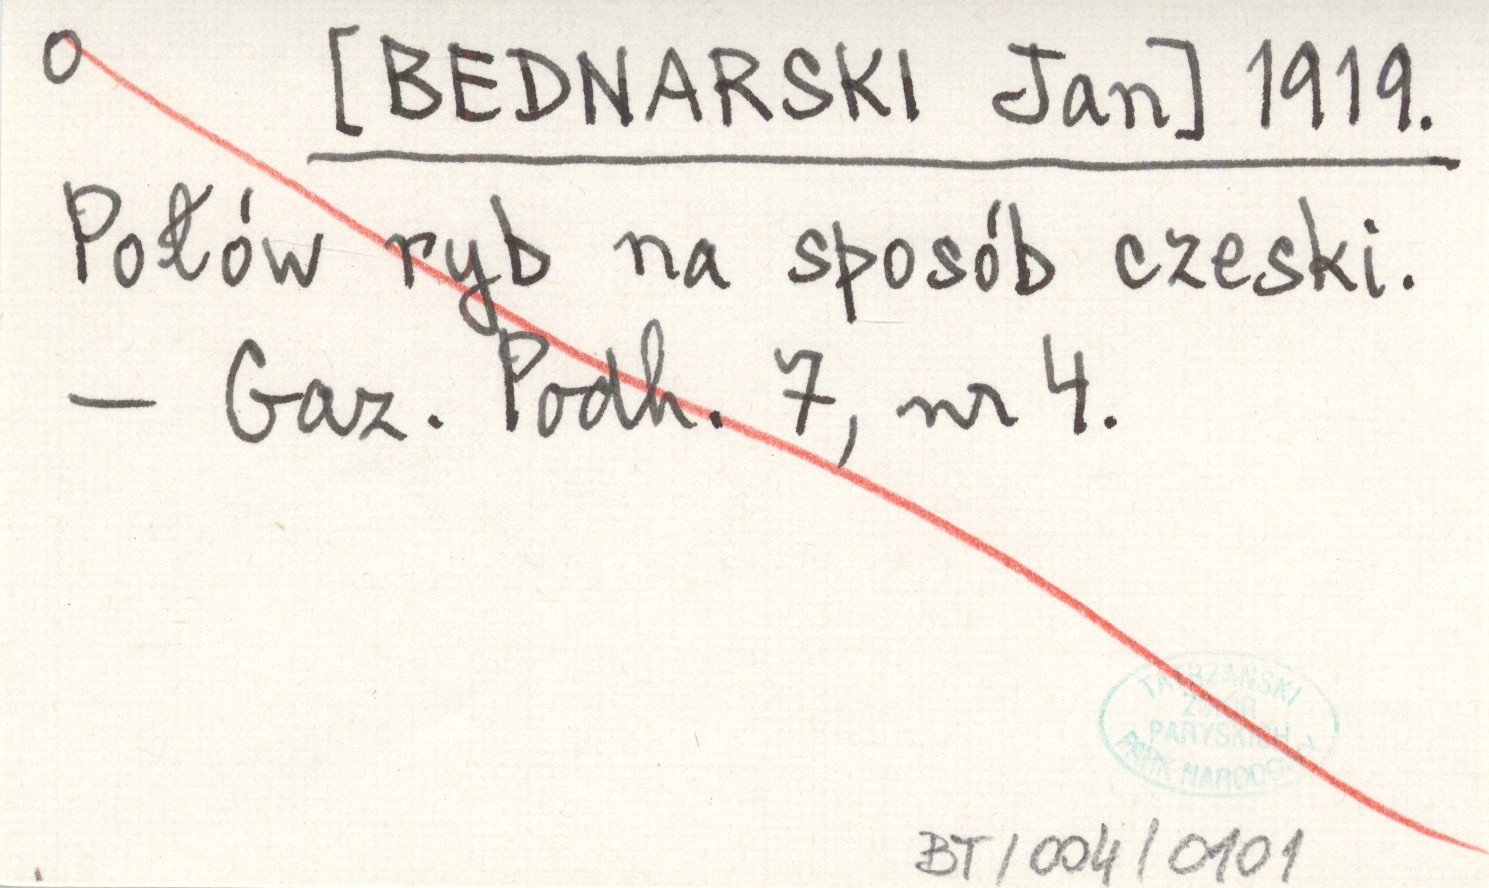 o [BEDNARSKI Jan] 1919.
Połów ryb na sposób czeski.
— Gaz. Podh. 7, nr 4.
TATRZAŃSKI
ZBIÓR
PARYSKICH
PARK NARODOWY
BT/004/0101